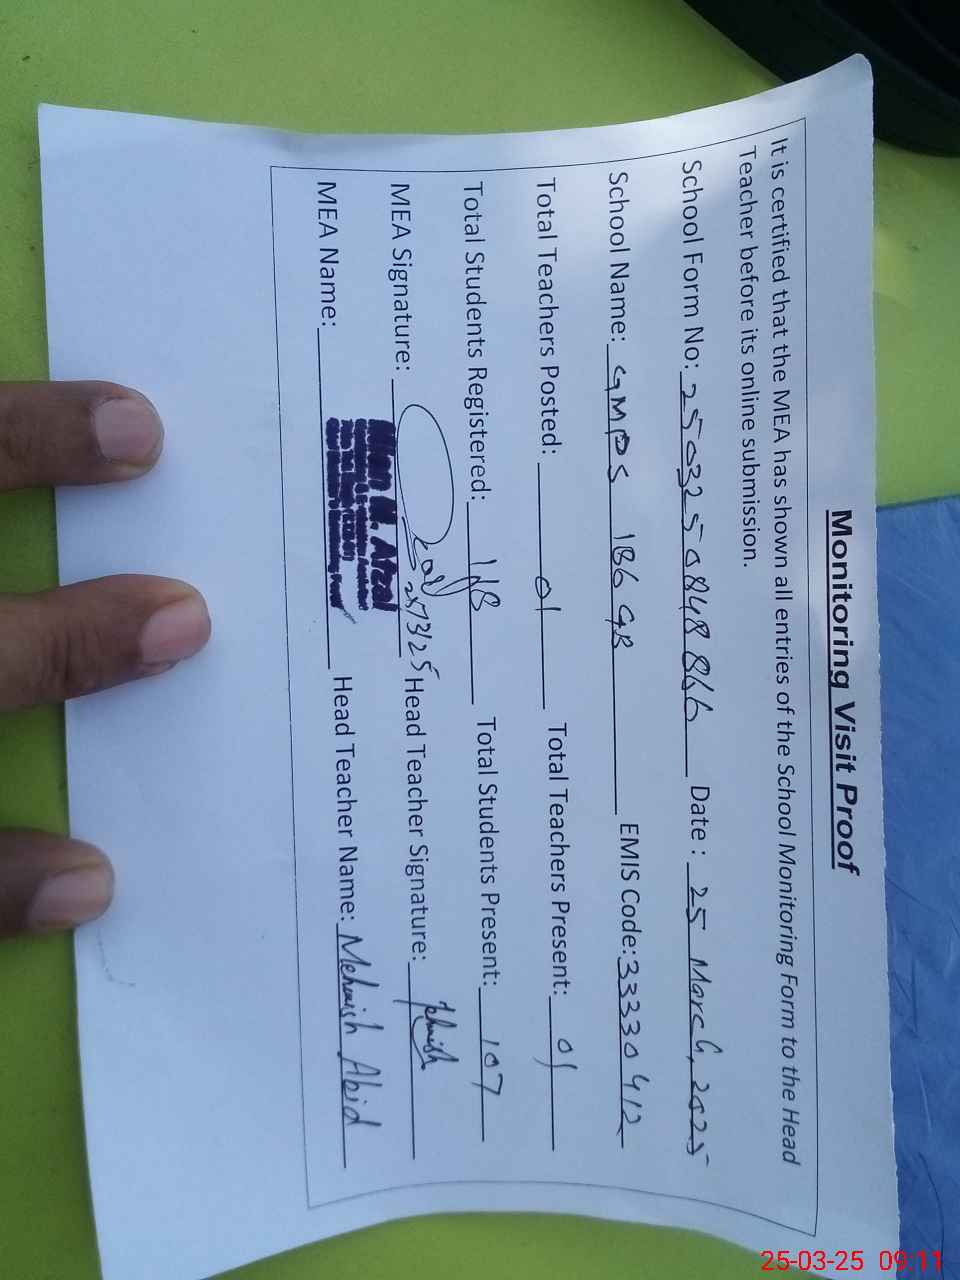 Monitoring Visit Proof
It is certified that the MEA has shown all entries of the School Monitoring Form to the Head
Teacher before its online submission.
School Form No: 250325 0848 866 Date : 25 March, 2025
School Name: GMPS 186 GB EMIS Code: 33330412
Total Teachers Posted: 01 Total Teachers Present: 01
Total Students Registered: 118 Total Students Present: 107
MEA Signature: 25/3/25 Head Teacher Signature: Mehwish
MEA Name: M. Afzal Head Teacher Name: Mehwish Abid
25-03-25 09:11